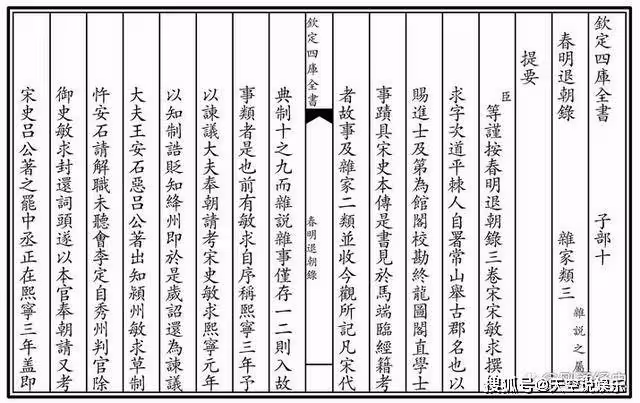 欽定四庫全書 子部十
春明退朝錄 雜家類三 雜說之屬
提要
臣等謹按春明退朝錄三卷宋宋敏求撰
求字次道平棘人自署常山舉古郡名也以
賜進士及第為館閣校勘終龍圖閣直學士
事蹟具宋史本傳是書見於馬端臨經籍考
者故事及雜家二類並收今觀所記凡宋代
欽定四庫全書 春明退朝錄
典制十之九而雜說雜事僅存一二則入故
事類者是也前有敏求自序稱熙寧三年予
以諫議大夫奉朝請考宋史敏求熙寧元年
以知制誥貶知絳州即於是歲詔還為諫議
大夫王安石惡呂公著出知潁州敏求草制
忤安石請解職未聽會李定自秀州判官除
御史敏求封還詞頭遂以本官奉朝請又考
宋史呂公著之罷中丞正在熙寧三年蓋即
搜狐号@天空说娱乐